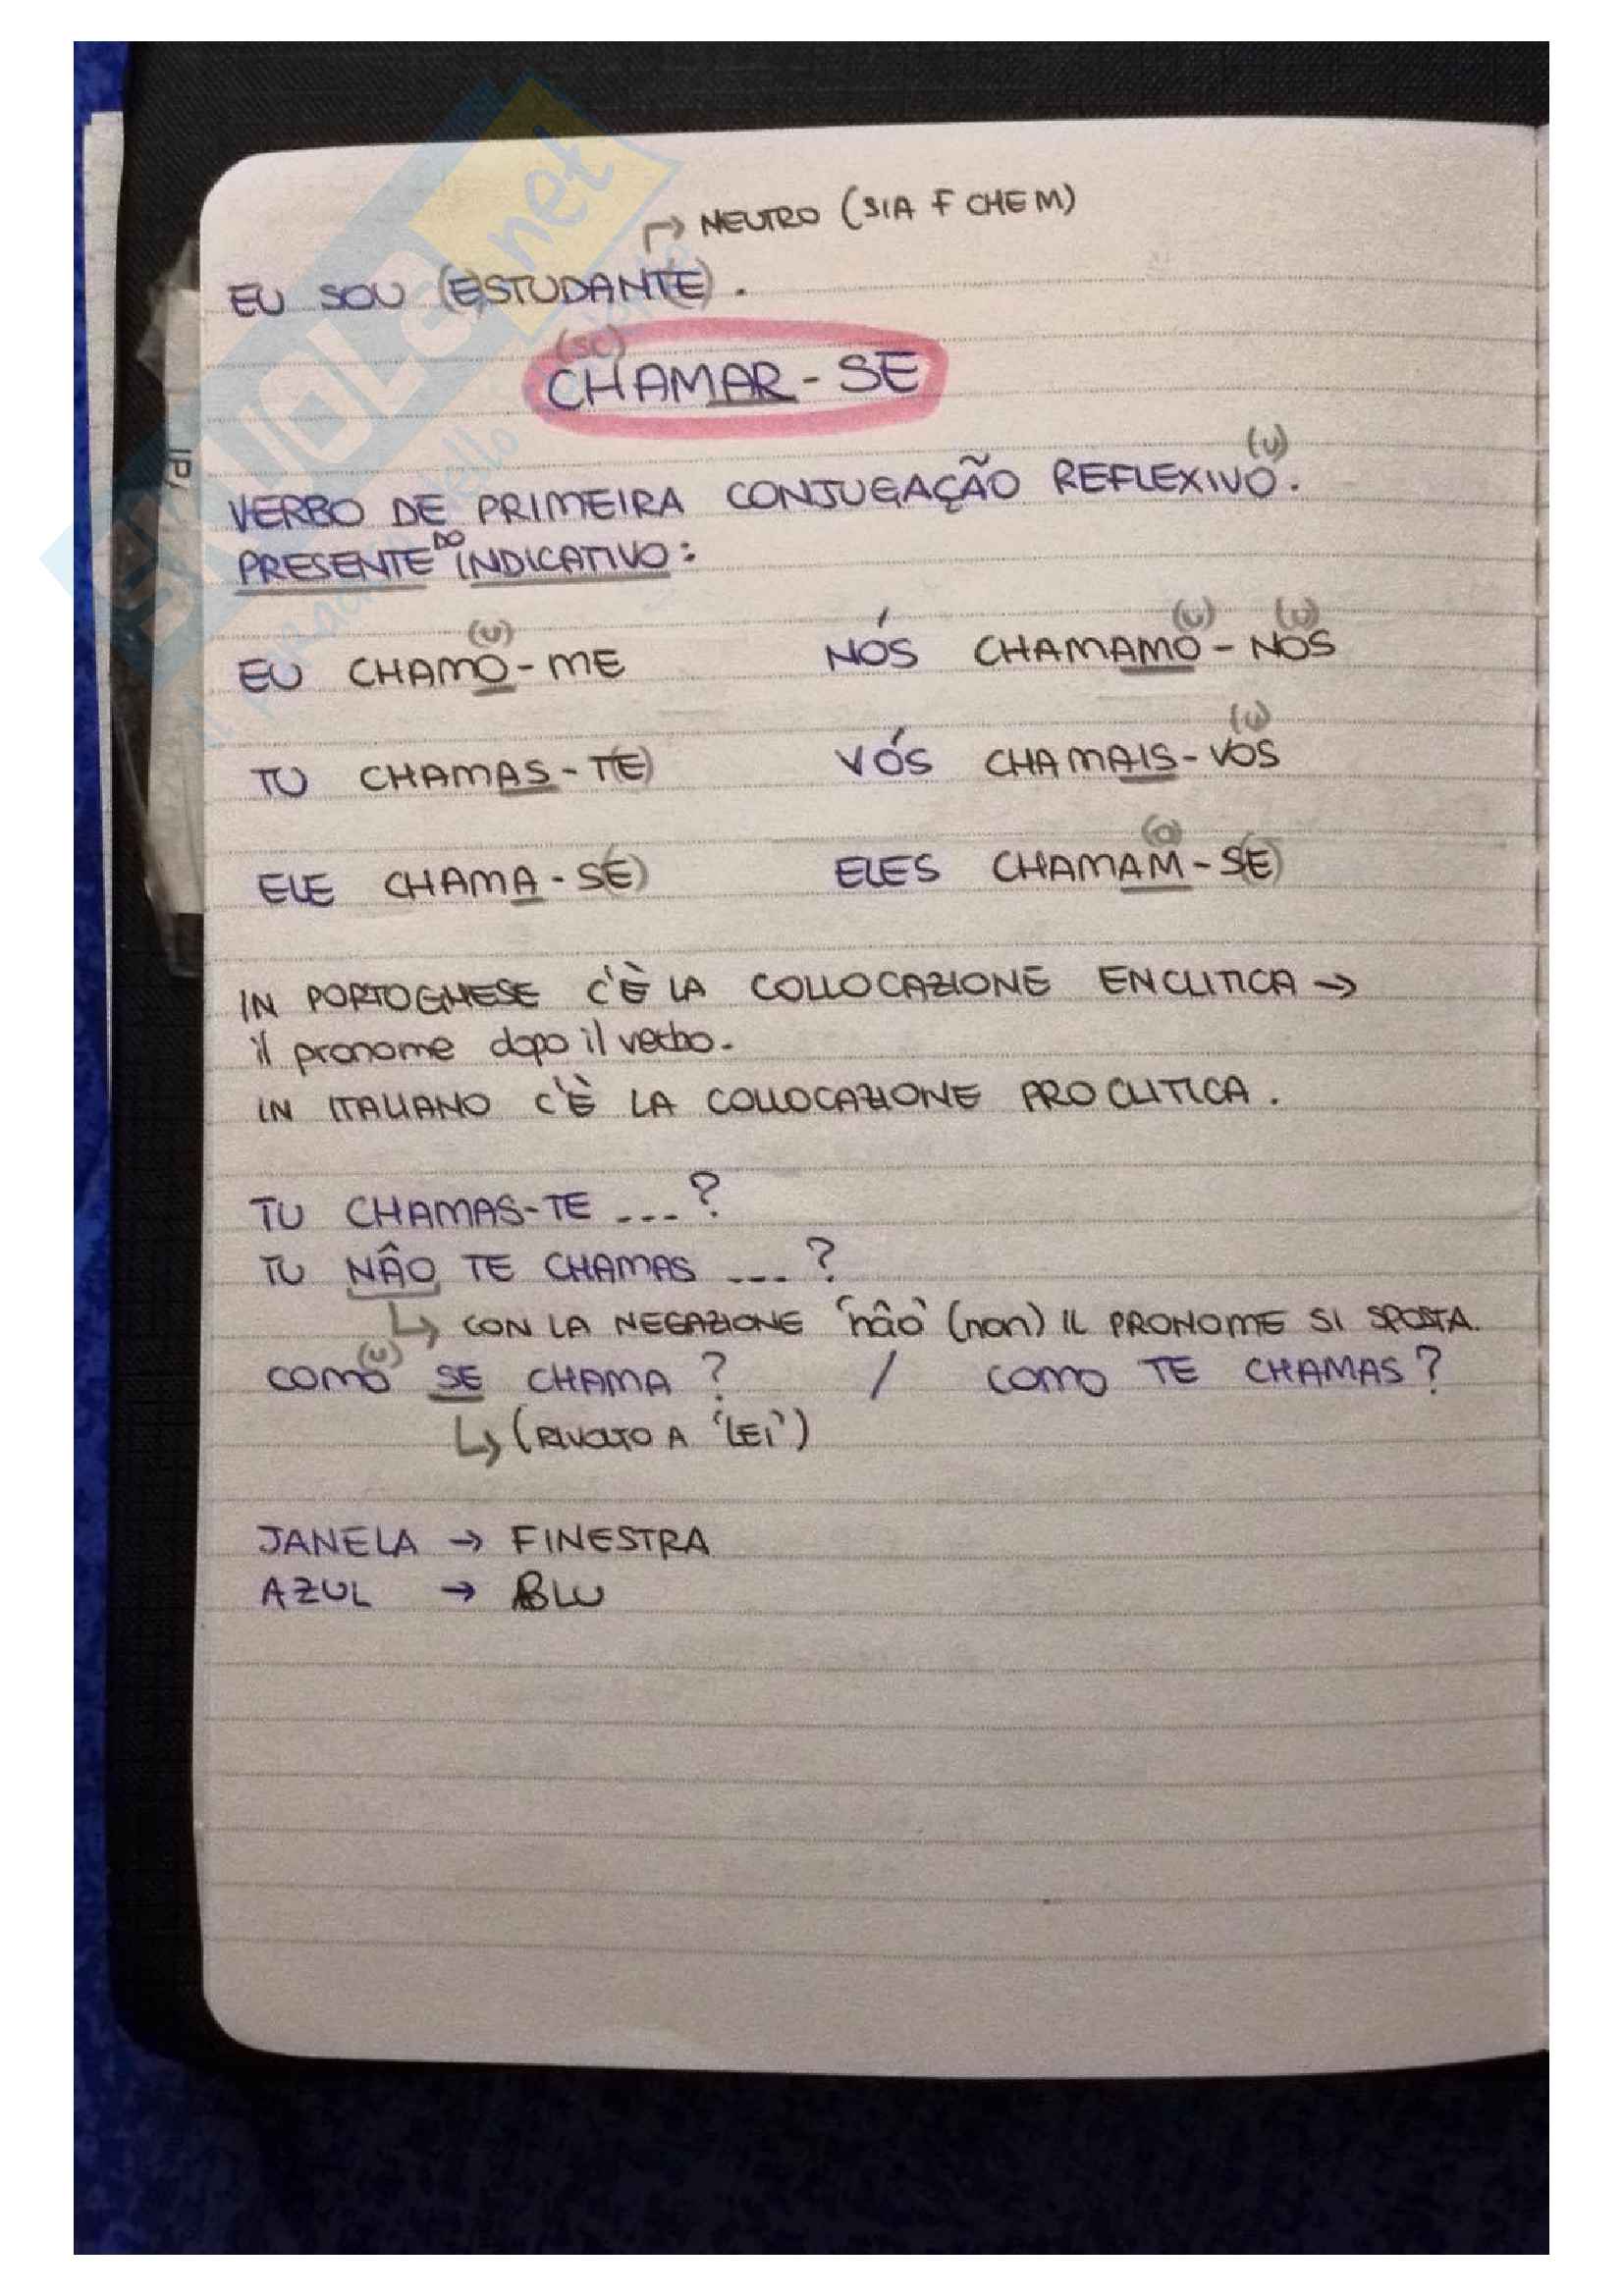 NEUTRO (SIA F CHE M)
EU SOU (E)STUDANT(E).
(SC)
CHAMAR-SE
(U)
VERBO DE PRIMEIRA CONJUGAÇÃO REFLEXIVO.
PRESENTE DO INDICATIVO:
(U)
EU CHAMO-ME
TU CHAMAS-T(E)
ELE CHAMA-S(E)
(U) (U)
NÓS CHAMAMO-NOS
(U)
VÓS CHAMAIS-VOS
(O)
ELES CHAMAM-S(E)
IN PORTOGHESE C'È LA COLLOCAZIONE ENCLITICA →
il pronome dopo il verbo.
IN ITALIANO C'È LA COLLOCAZIONE PROCLITICA.
TU CHAMAS-TE ---?
TU NÂO TE CHAMAS ---?
↳ CON LA NEGAZIONE 'nâo' (non) IL PRONOME SI SPOSTA.
(U)
COMO SE CHAMA? / COMO TE CHAMAS?
↳ (RIVOLTO A 'LEI')
JANELA → FINESTRA
AZUL → BLU
SKUOLA.net